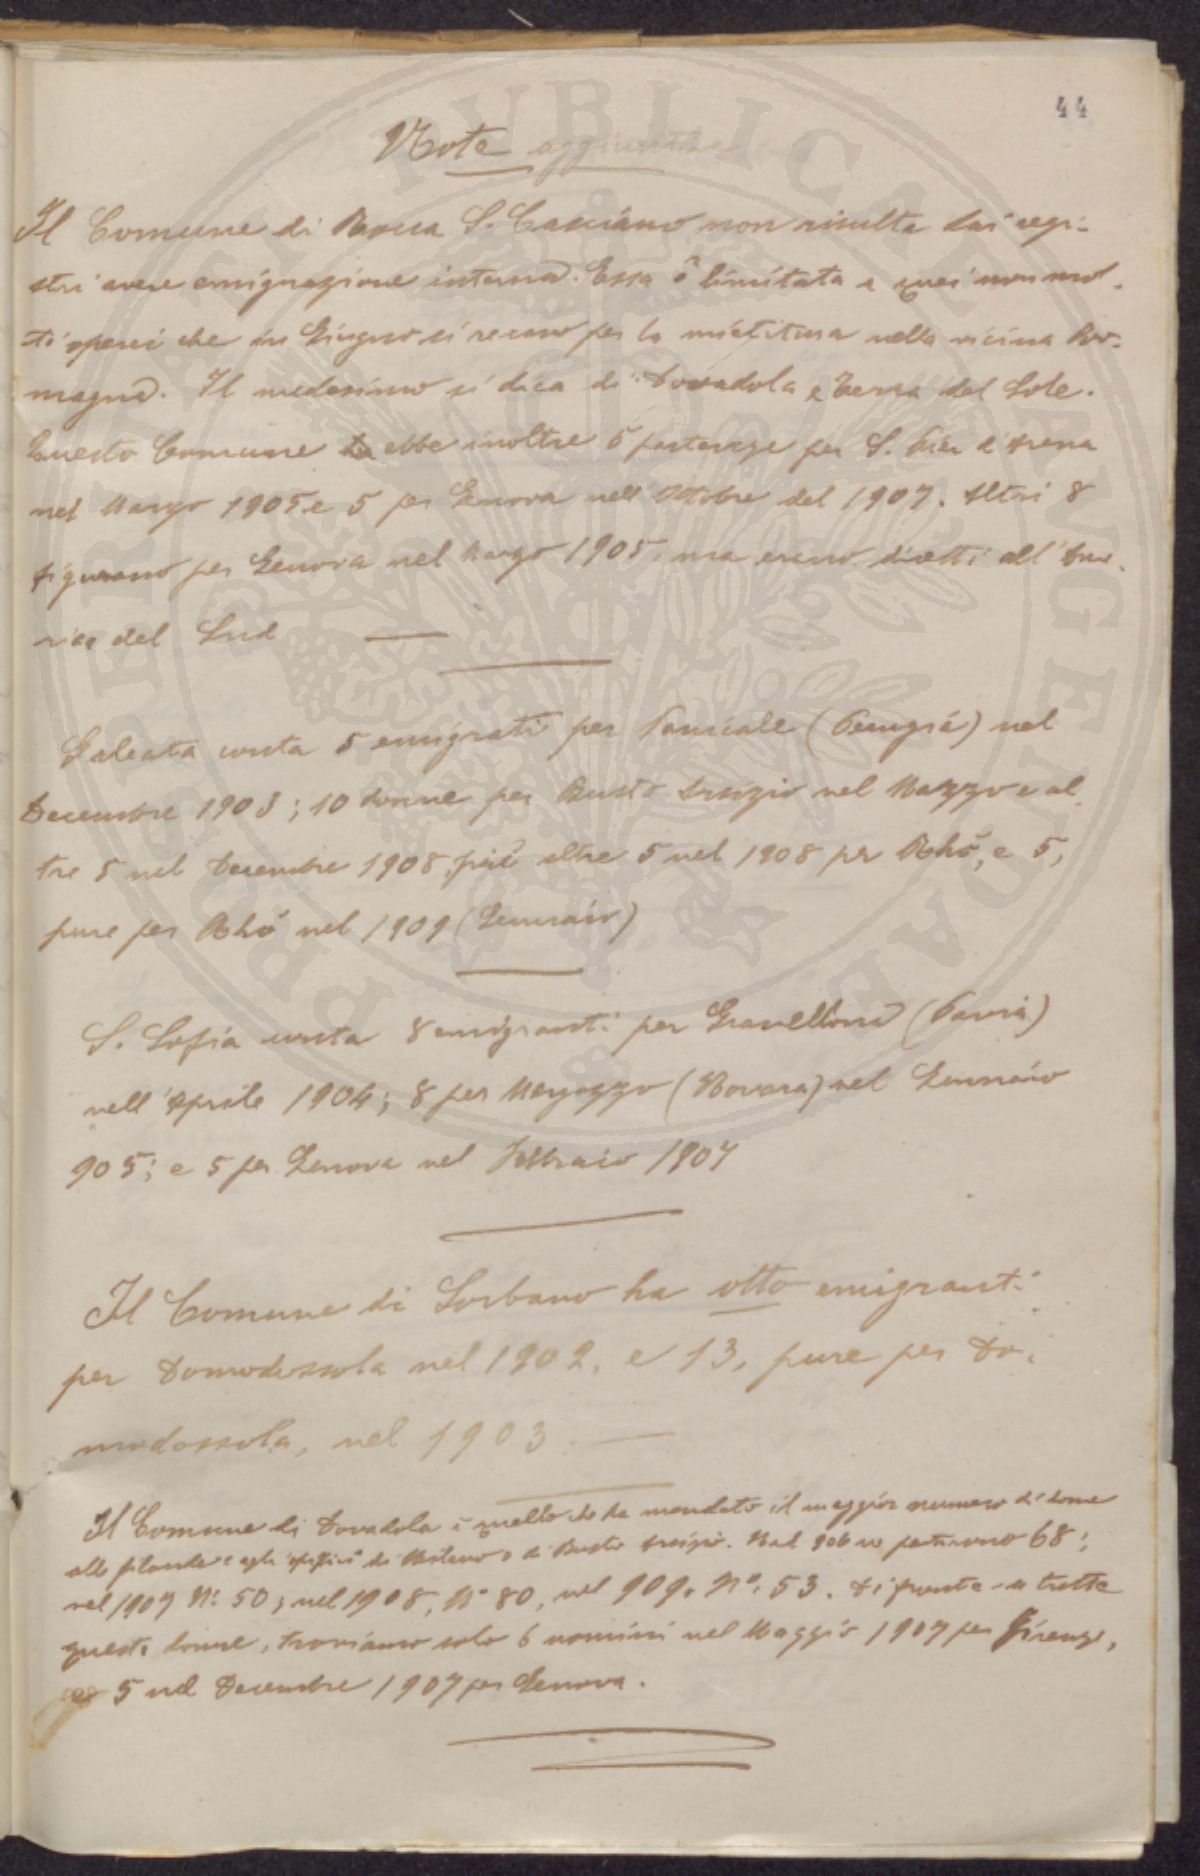 44
Note aggiuntive
Il Comune di Rocca S. Casciano non risulta dai regi-
stri avere emigrazione interna. Essa è limitata a quei non mol-
ti operai che in Giugno si recano per la mietitura nella vicina Ro-
magna. Il medesimo si dica di Dovadola e Terra del Sole.
Questo Comune ebbe inoltre 6 partenze per S. Pier d'Arena
nel Marzo 1905 e 5 per Genova nell'Ottobre del 1907. Altri 8
figurano per Genova nel Marzo 1905, ma erano diretti all'Ame-
rica del Sud
Galeata conta 5 emigrati per Panicale (Perugia) nel
Decembre 1903; 10 donne per Busto Arsizio nel Marzo e al-
tre 5 nel Decembre 1908, più altre 5 nel 1908 per Rhò, e 5,
pure per Rhò nel 1909 (Gennaio)
S. Sofia conta 8 emigranti per Gravellona (Pavia)
nell'Aprile 1904; 8 per (Novara) nel Gennaio
905; e 5 per Genova nel Febbraio 1907
Il Comune di Sorbano ha otto emigranti
per Domodossola nel 1902, e 13, pure per Do-
modossola, nel 1903
Il Comune di Dovadola è quello che ha mandato il maggior numero di donne
alle filande e agli opifici di o di Busto Arsizio. Nel 906 ne partirono 68;
nel 1907 N° 50; nel 1908, N° 80, nel 909, N° 53. Di fronte a tutte
queste donne, troviamo solo 6 uomini nel Maggio 1907 per Firenze,
5 nel Decembre 1907 per Genova.
PPOSPERITAS PUBLICAE FRUGES